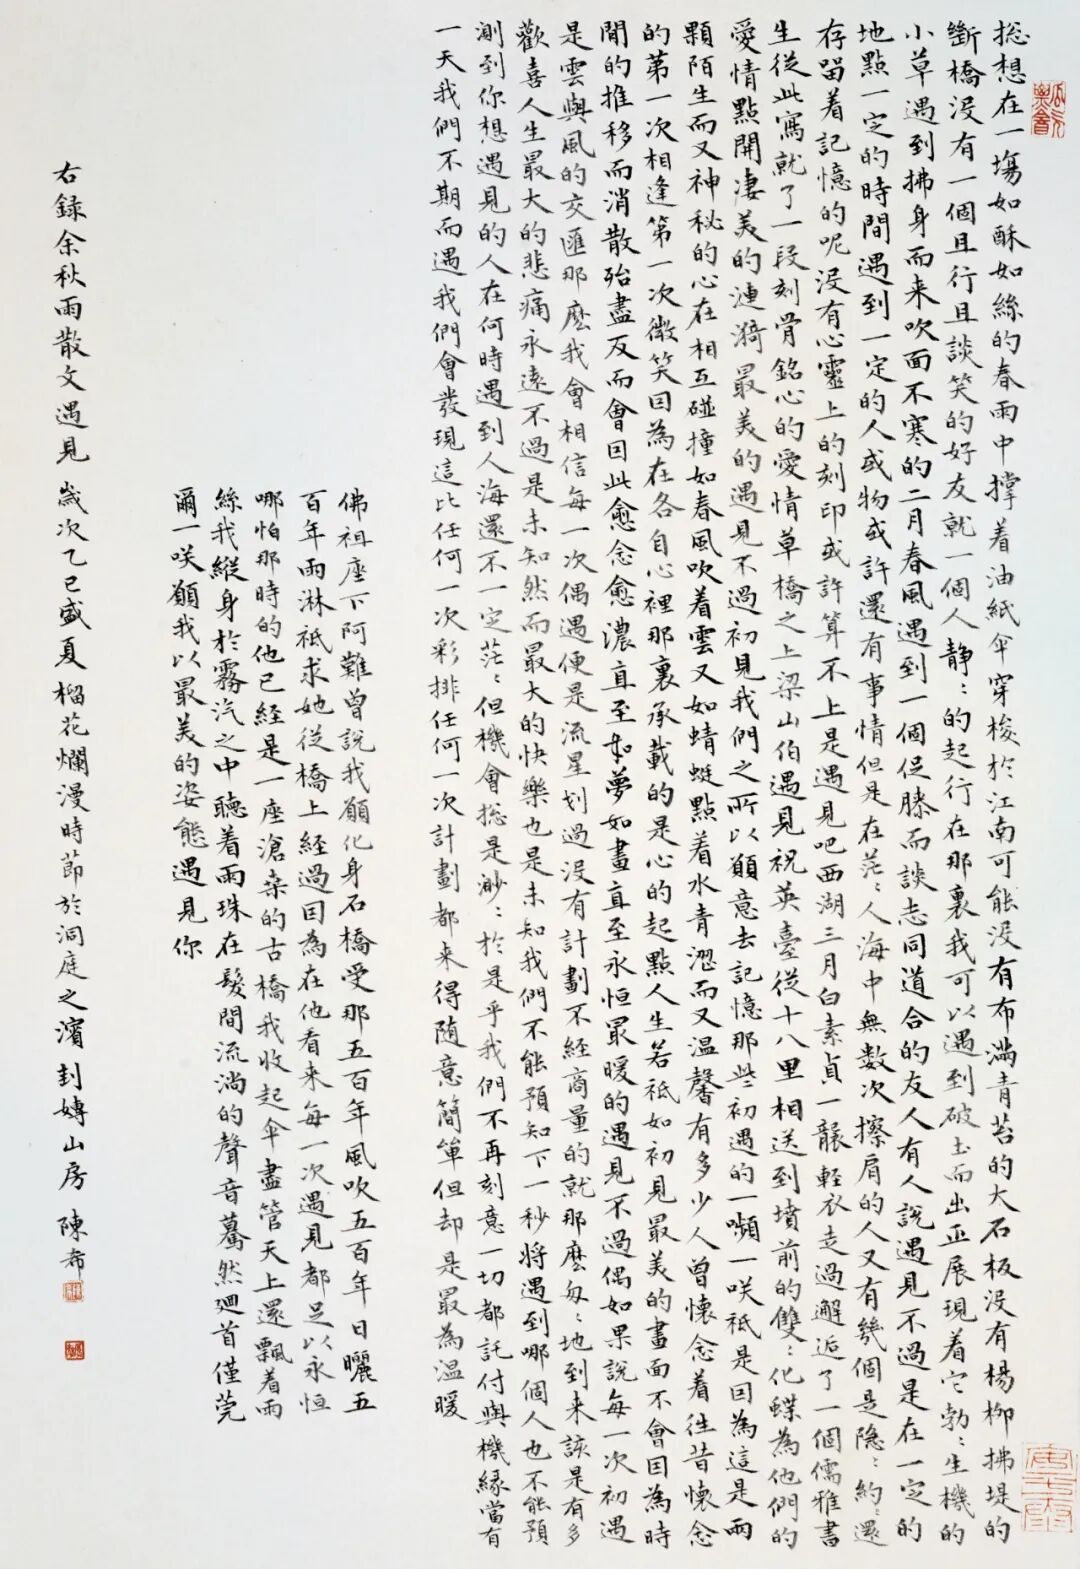 總想在一場如酥如絲的春雨中撐着油紙傘穿梭於江南可能没有布滿青苔的大石板没有楊柳拂堤的
斷橋没有一個且行且談笑的好友就一個人静〻的起行在那裏我可以遇到破土而出正展現着它勃〻生機的
小草遇到拂身而来吹面不寒的二月春風遇到一個促膝而談志同道合的友人有人說遇見不過是在一定的
地點一定的時間遇到一定的人或物或許還有事情但是在茫〻人海中無數次擦肩的人又有幾個是隐〻約〻還
存留着記憶的呢没有心靈上的刻印或許算不上是遇見吧西湖三月白素貞一襲輕衣走過邂逅了一個儒雅書
生從此寫就了一段刻骨銘心的愛情草橋之上梁山伯遇見祝英臺從十八里相送到墳前的雙〻化蝶為他們的
愛情點開凄美的漣漪最美的遇見不過初見我們之所以願意去記憶那些初遇的一嚬一咲祗是因為這是兩
顆陌生而又神秘的心在相互碰撞如春風吹着雲又如蜻蜓點着水青澀而又温馨有多少人曾懷念着往昔懷念
的第一次相逢第一次微笑因為在各自心裡那裏承載的是心的起點人生若祗如初見最美的畫面不會因為時
間的推移而消散殆盡反而會因此愈念愈濃直至如夢如畫直至永恒最暖的遇見不過偶如果說每一次初遇
是雲與風的交匯那麽我會相信每一次偶遇便是流星划過没有計劃不經商量的就那麽匆〻地到来該是有多
歡喜人生最大的悲痛永遠不過是未知然而最大的快樂也是未知我們不能預知下一秒將遇到哪個人也不能預
測到你想遇見的人在何時遇到人海還不一定茫〻但機會總是渺〻於是乎我們不再刻意一切都託付與機緣當有
一天我們不期而遇我們會發現這比任何一次彩排任何一次計劃都来得随意簡單但却是最為温暖
佛祖座下阿難曾說我願化身石橋受那五百年風吹五百年日曬五
百年雨淋祗求她從橋上經過因為在他看来每一次遇見都足以永恒
哪怕那時的他已經是一座滄桑的古橋我收起傘盡管天上還飄着雨
絲我縱身於霧汽之中聽着雨珠在髮間流淌的聲音驀然廻首僅莞
爾一咲願我以最美的姿態遇見你
右錄余秋雨散文遇見歲次乙巳盛夏榴花爛漫時節於洞庭之濱封嫥山房陳希